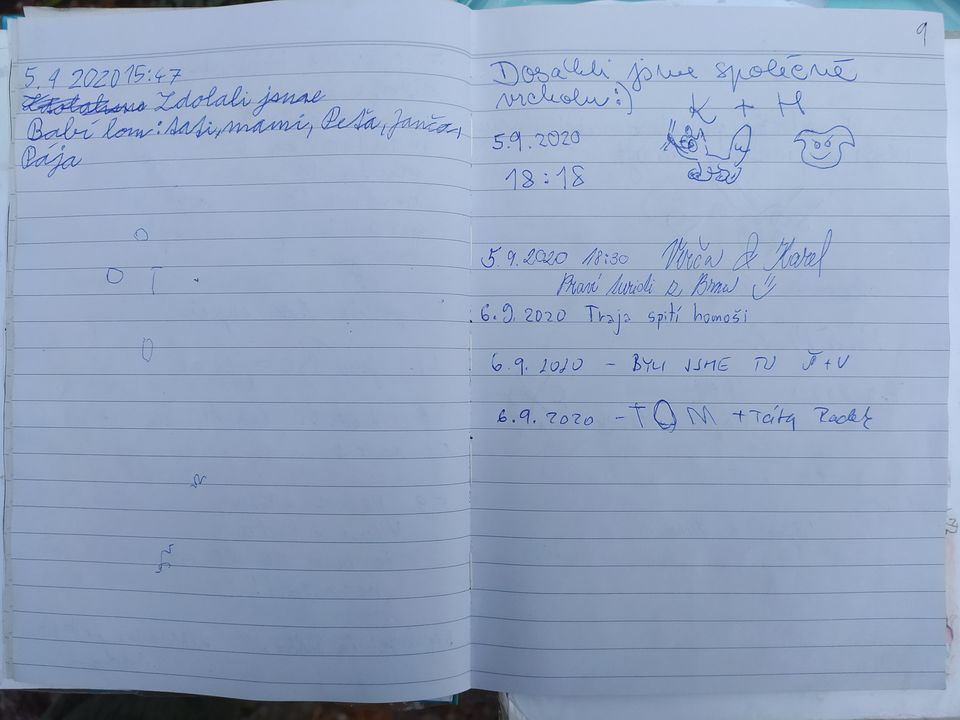 5.9 2020 15:47
Zdolali jsme
Babí lom: taťi, mami, Peťa, Janča,
Pája
9
Dosáhli jsme společně
vrcholu :)
K + H
5.9.2020
18:18
5.9.2020 18:30 Verča & Karel
Praví turisti z Brna
6.9.2020 Traja spití homoši
6.9.2020 - BYLI JSME TU + V
6.9.2020 - TOM + Táta Radek